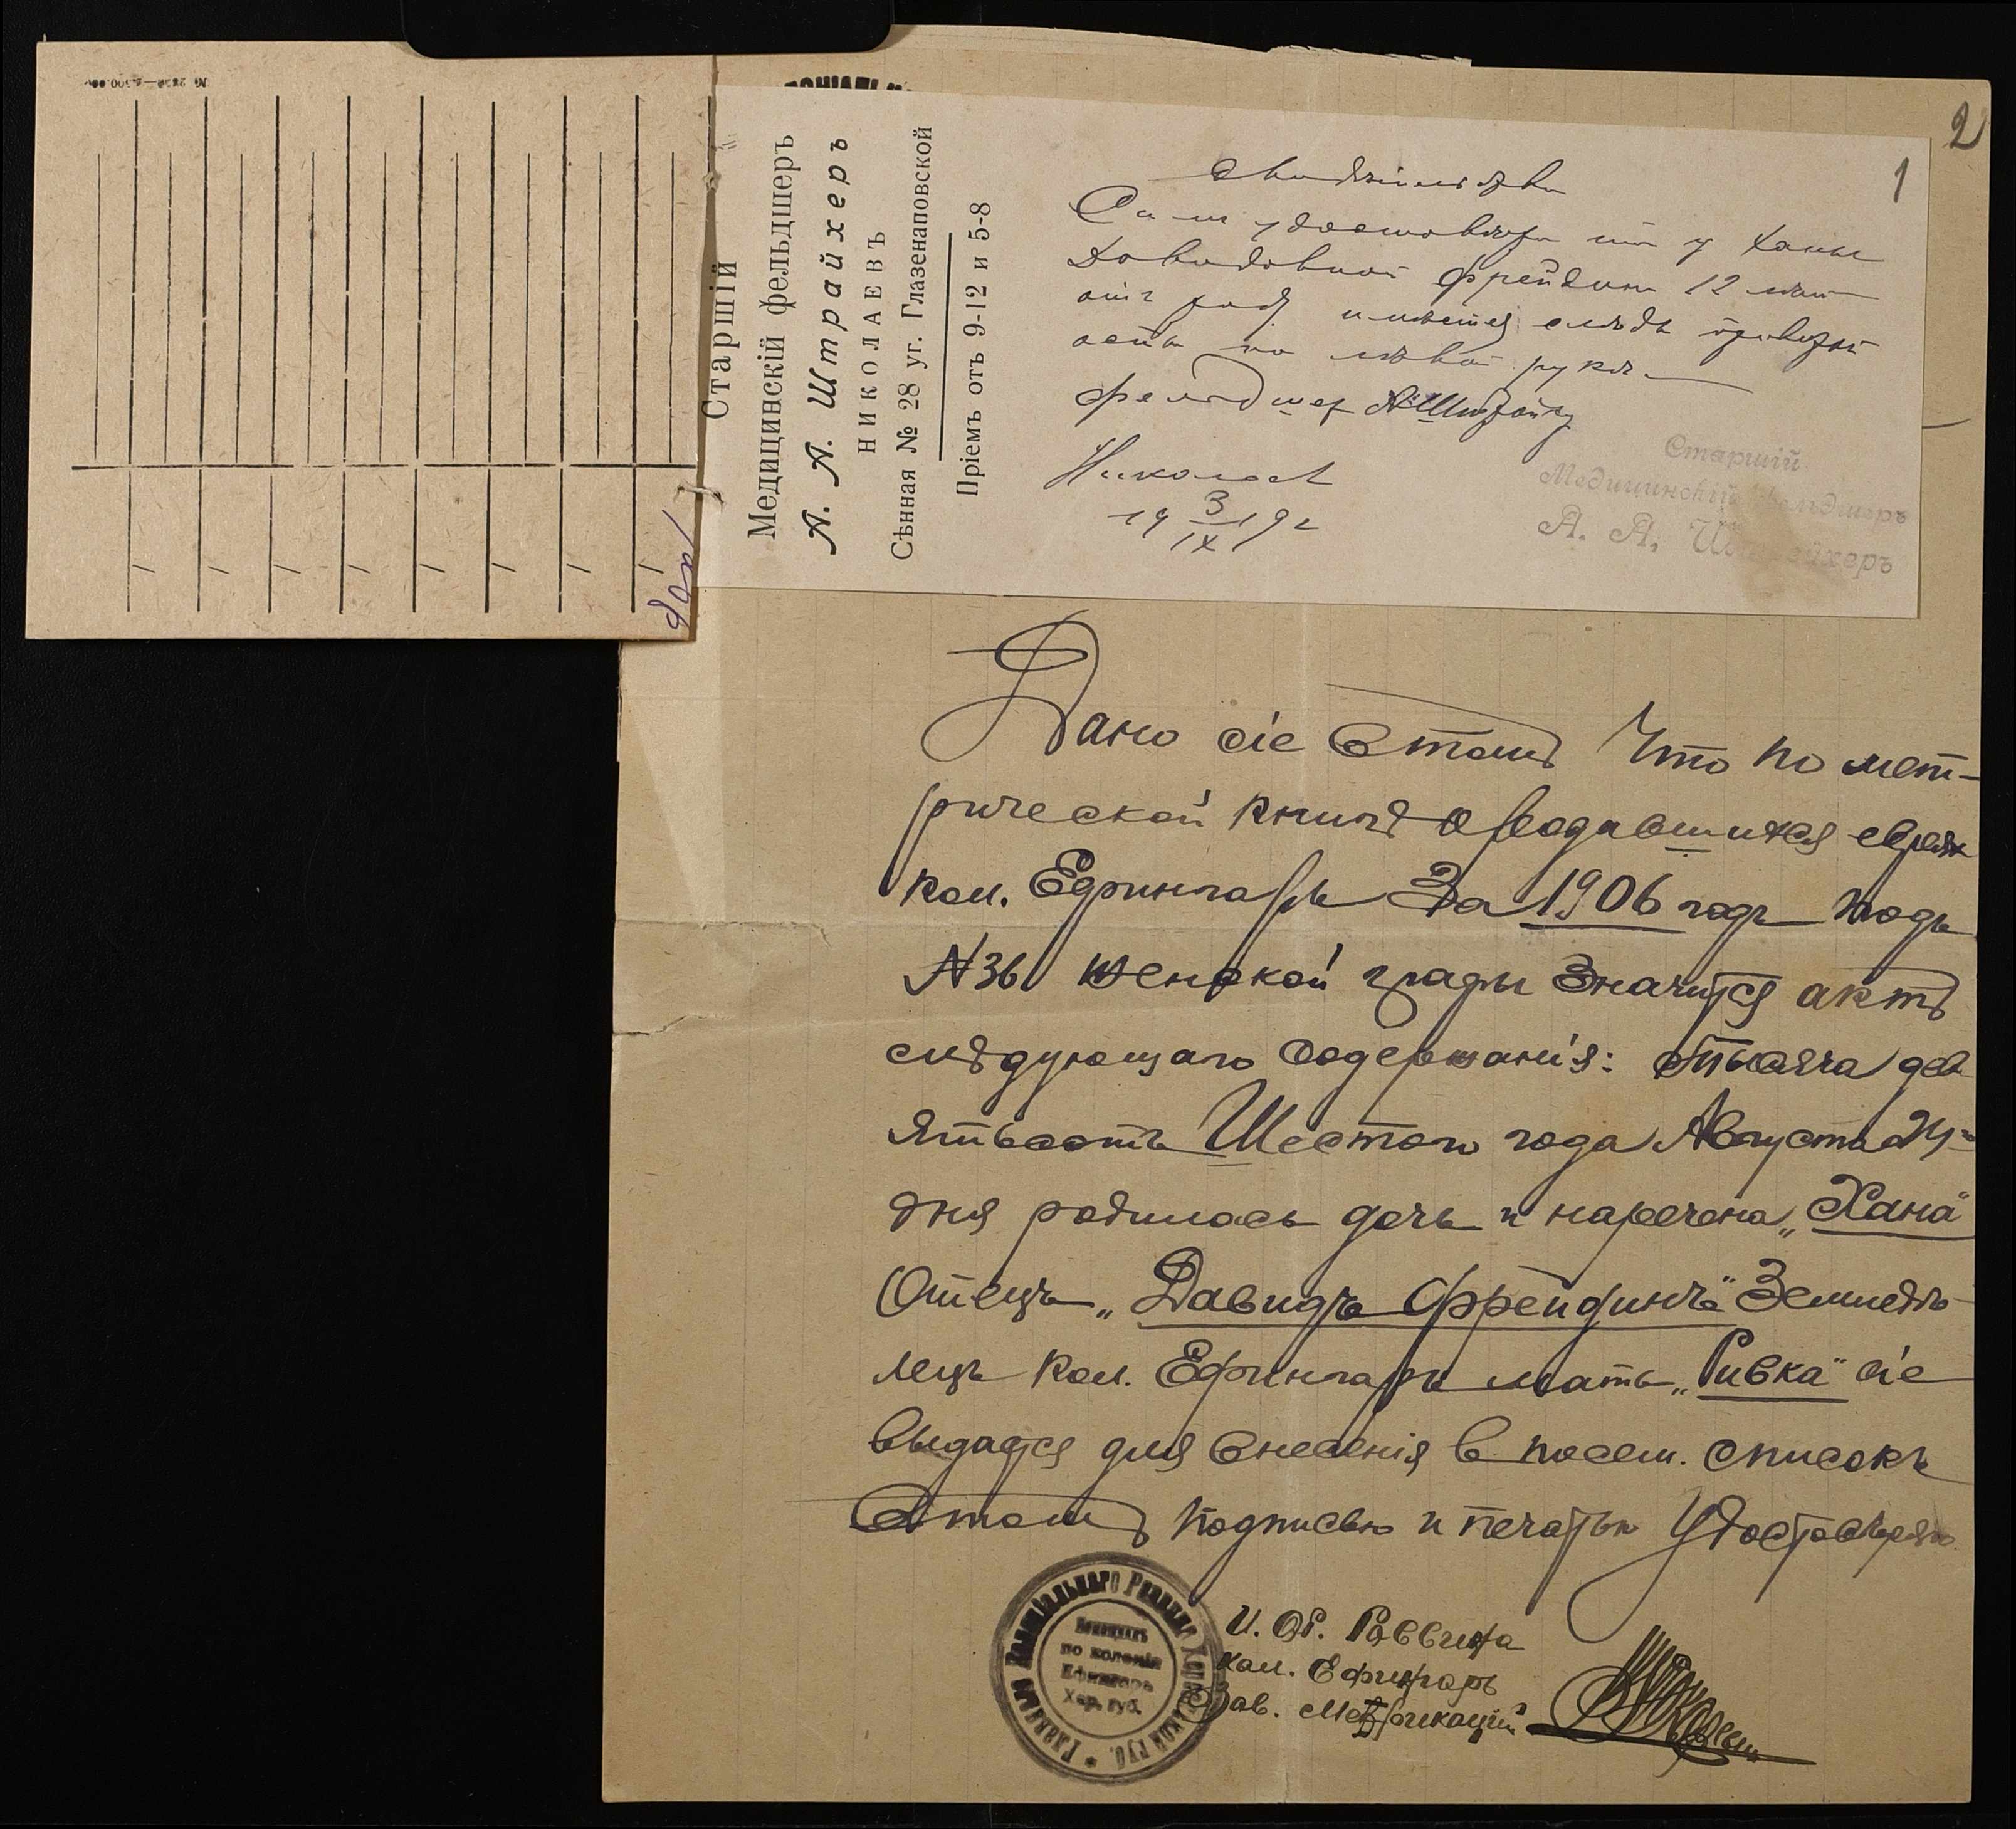 №
2
1
Старшій
Медицинскій фельдшеръ
А. А. Штрайхеръ
НИКОЛАЕВЪ
Сѣнная № 28 уг. Глазенаповской
Пріемъ отъ 9-12 и 5-8
Свидѣтельство
удостовѣряю что у Ханы
Давидовной Фрейдин 12 лѣт
от рода имѣется слѣды привитой
оспы на лѣвой руке
фельдшер АШтрайх
Николаев
19 3/IX 19
Старшій
Медицинскій фельдшеръ
А. А. Штрайхеръ
Дано сіе втомъ Что по мет-
рической книгѣ о родавшихся евреях
кол. Ефингаръ За 1906 годъ подъ
N 36 женской графы Значится актъ
слѣдующаго содержанія: Тысяча дев
ятьсотъ Шестого года Августа 24-
дня родилась дочь и наречена „Хана“
Отецъ „Давидъ Фрейдинъ“ Земледѣ-
лецъ кол. Ефингаръ мать „Ривка“ сіе
выдадся для внесенія в посем. списокъ
втомъ подписью и печатью Удостоверяю
И. Об. Раввина
кол. Ефингаръ
Зав. Метрикаціи
Раввина Херсонской губ.
Помощникъ
по колоніи
Ефингаръ
Хер. губ.